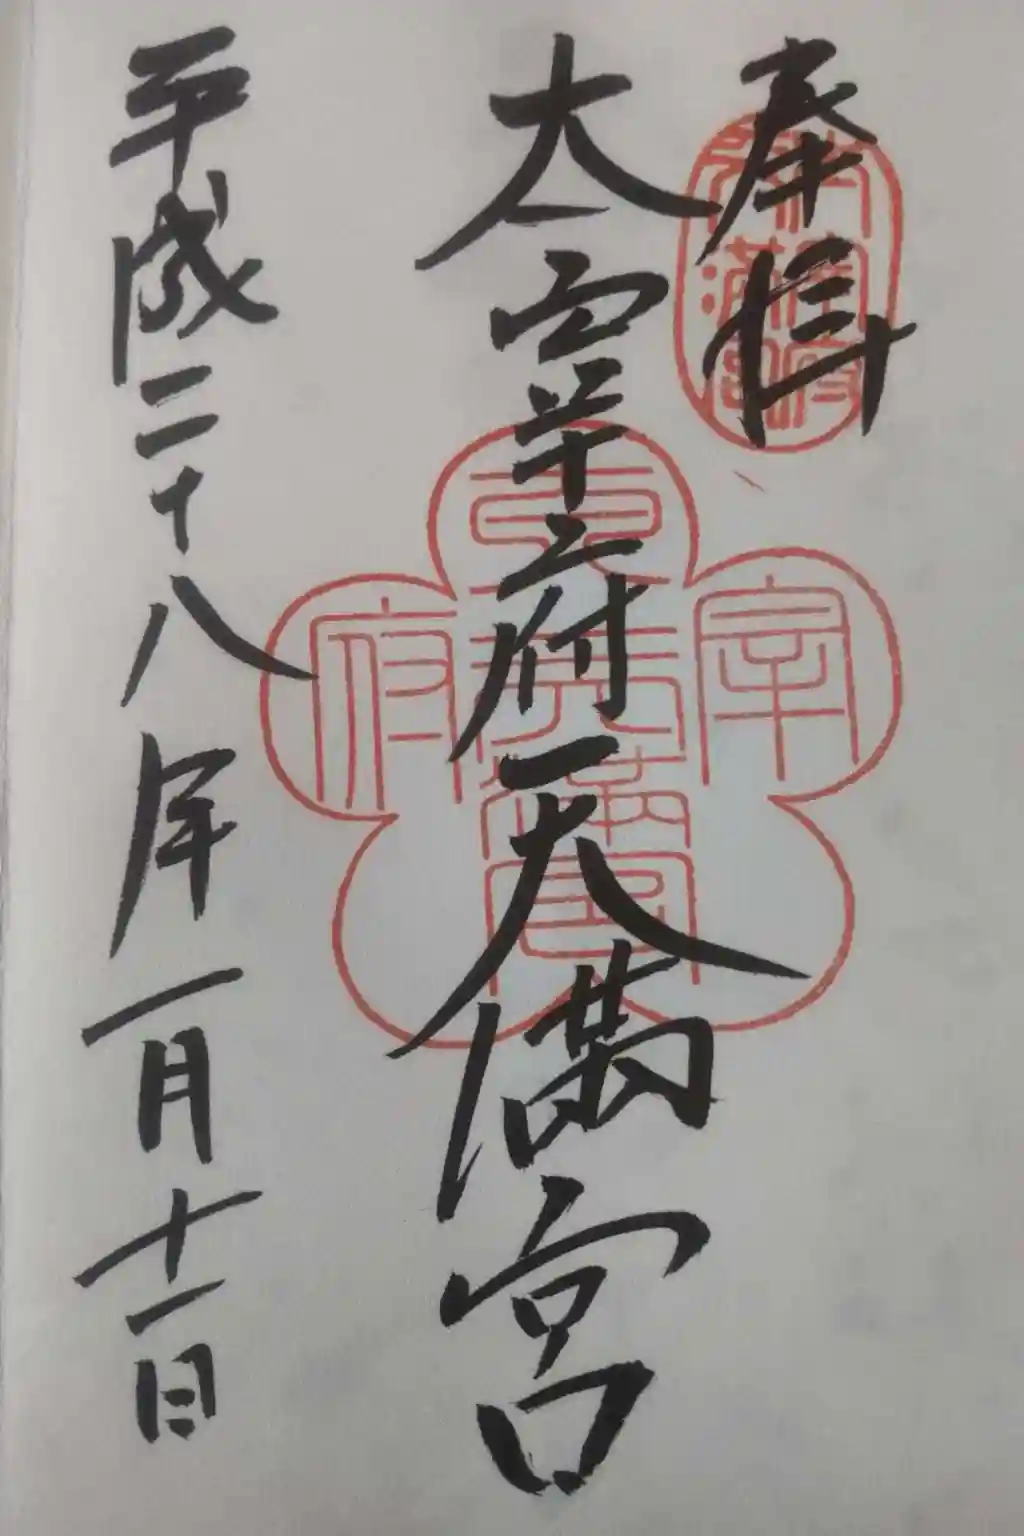 奉拝
太宰府天満宮
平成二十八年一月十一日
太宰府天満宮
太宰府天満宮